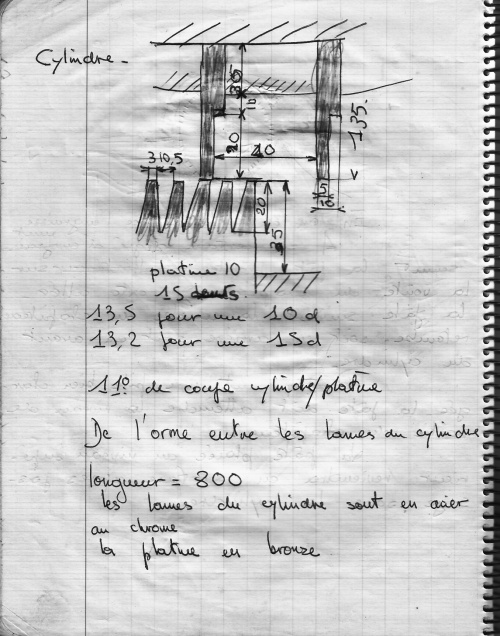 Cylindre -
35
10
20
40
135.
5
10
3 10,5
20
35
platine 10
15 dents.
13,5 pour une 10d
13,2 pour une 15d
11° de coupe cylindre/platine
De l'orme entre les lames du cylindre
longueur = 800
les lames du cylindre sont en acier
au chrome
la platine en bronze